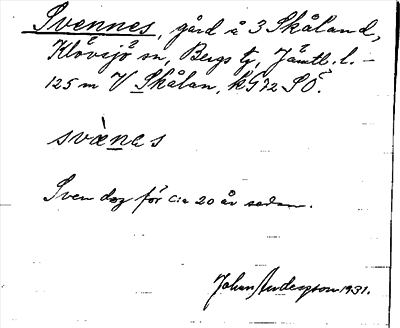 Svennes, gård å 3 Skåland,
Klövsjö sn, Bergs tg, Jämtl. l. –
125 m V Skålan, kG 72 SÖ.
svæ̀nas
Sven dog för c:a 20 år sedan.
Johan Andersson 1931.